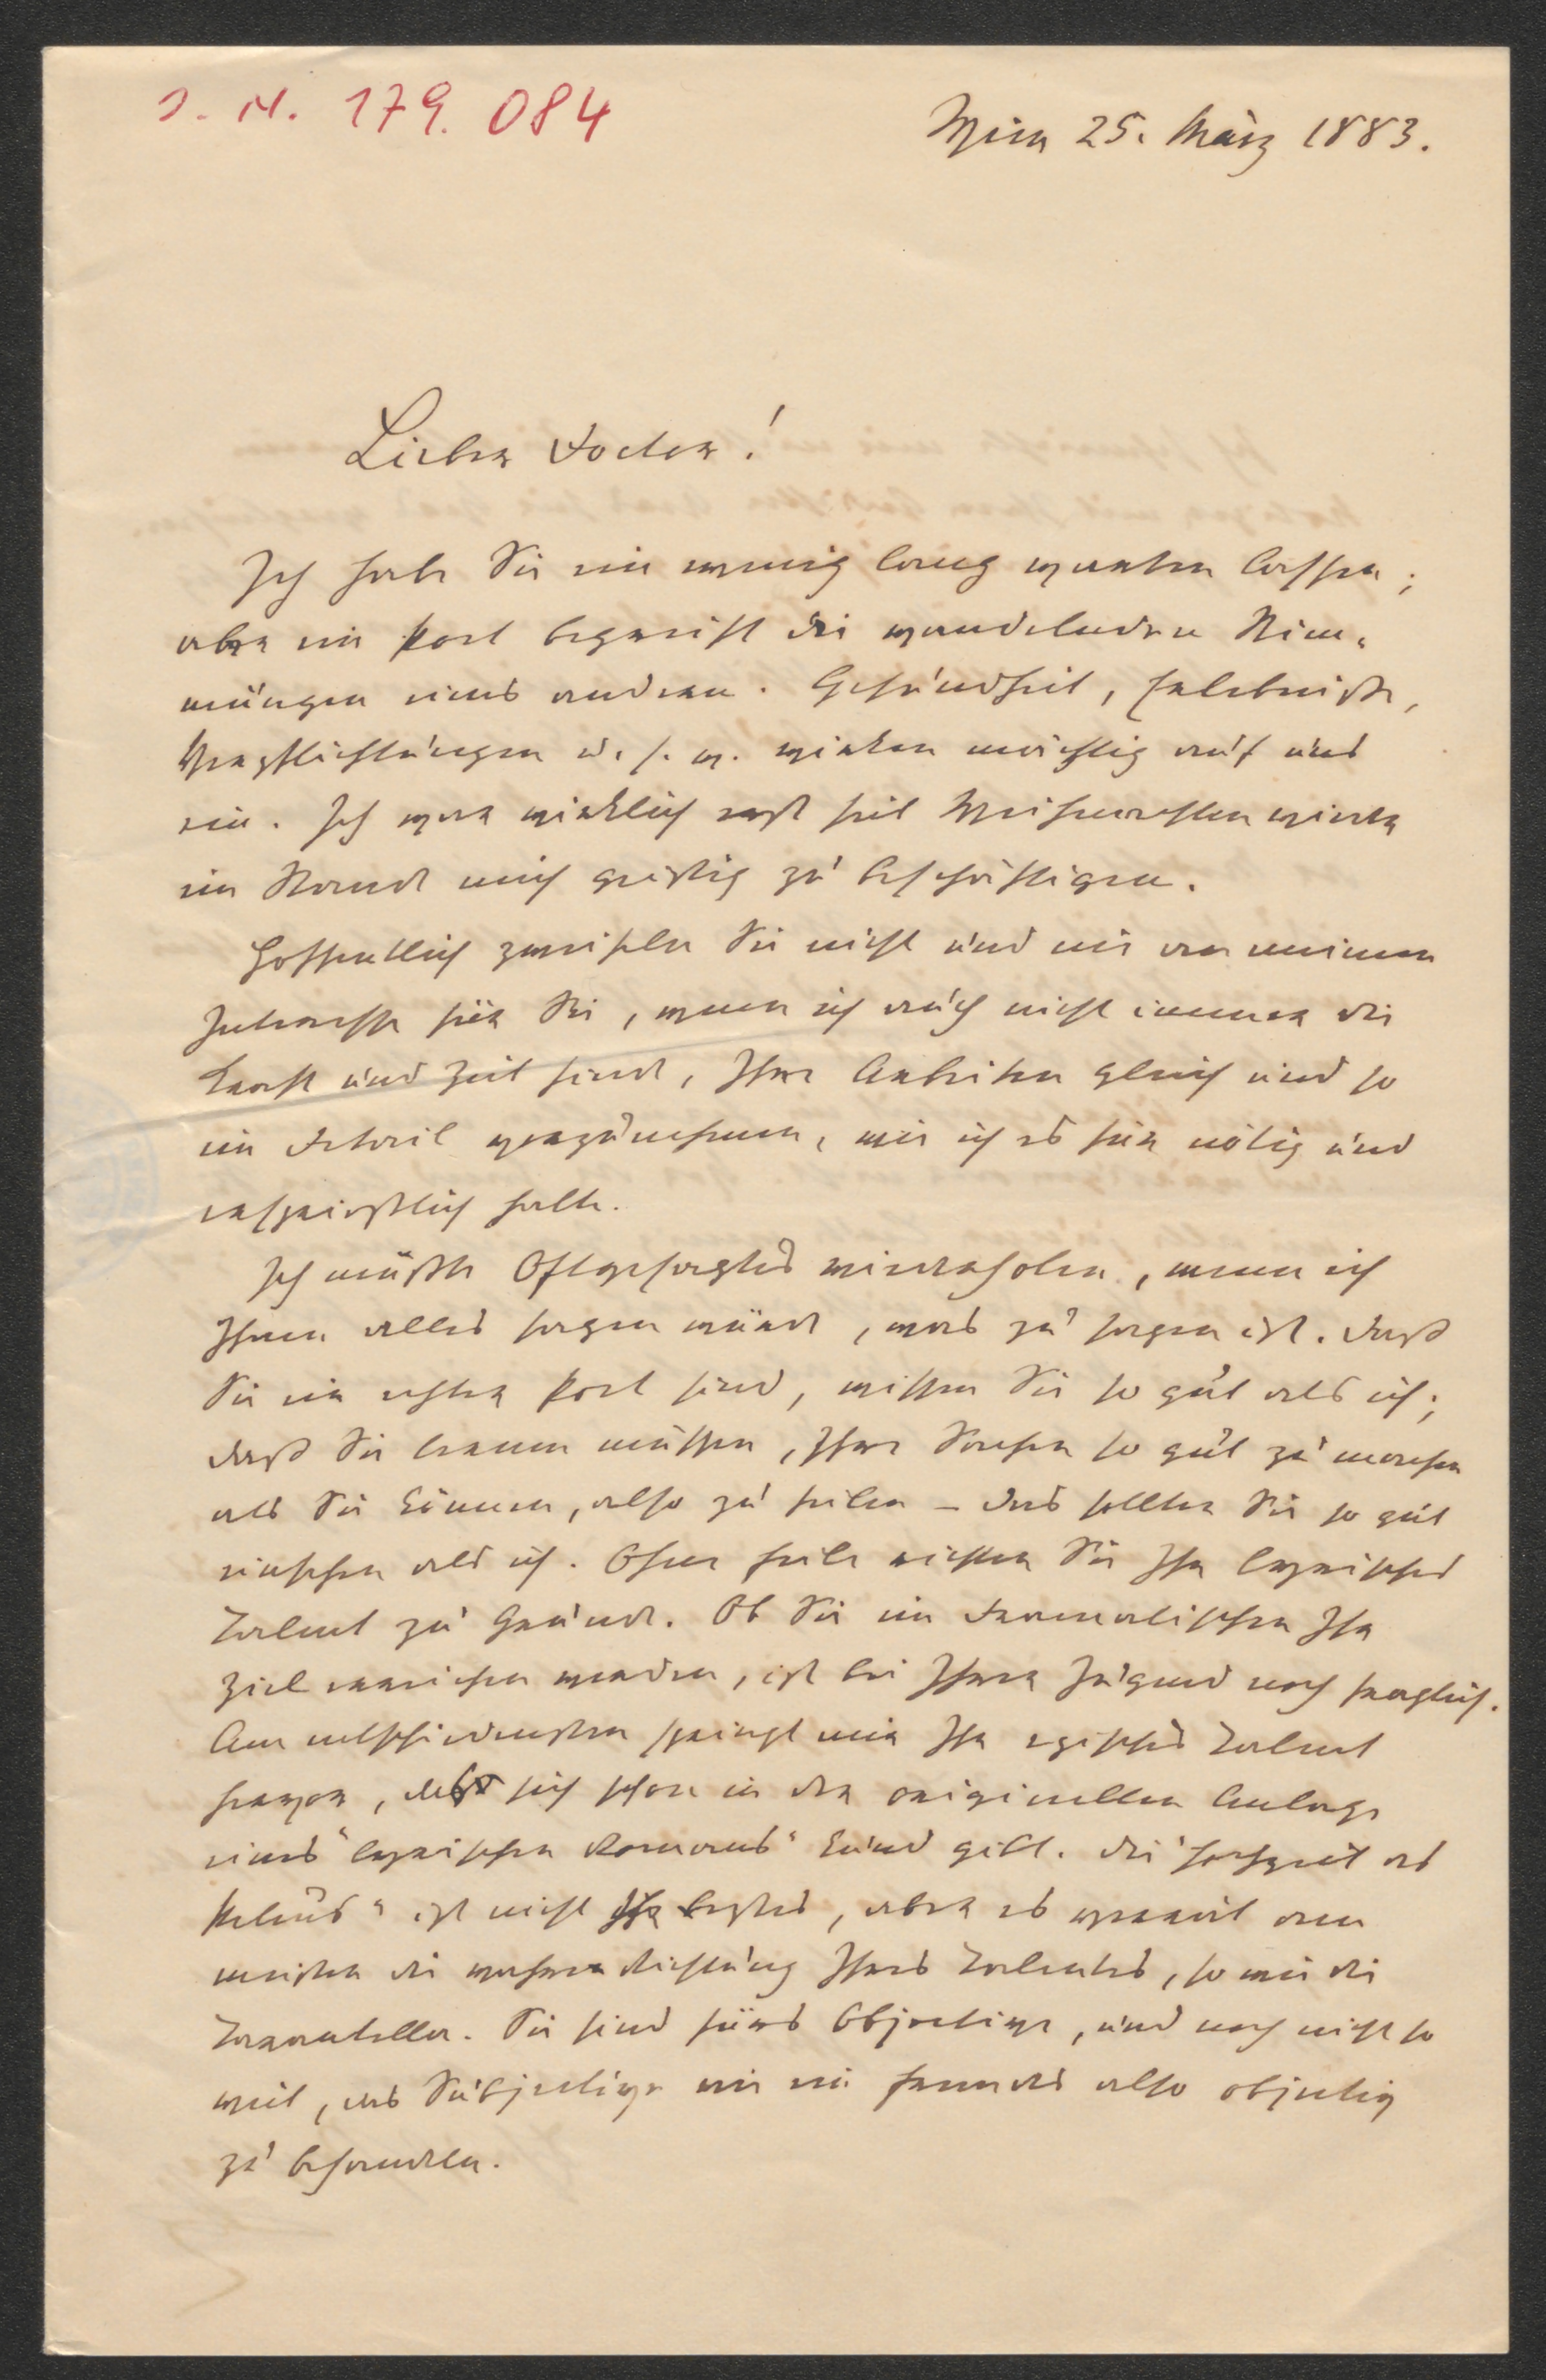 I. N. 179.084
Wien 25. März 1883.
Lieber Doctor!
Ich habe Sie ein wenig lang warten lassen;
aber ein Poet begreift die wandelnden Stim-
mungen eines andern. Gesundheit, Erlebnisse,
Verpflichtungen u. s. w. wirken mächtig auf uns
ein. Ich war wirklich erst seit Weihnachten wieder
im Stande mich geistig zu beschäftigen.
Hoffentlich zweifeln Sie nicht und nie an meinem
Interesse für Sie, wenn ich auch nicht immer die
Kraft und Zeit finde, Ihre Arbeiten gleich und so
im Detail vorzunehmen, wie ich es für nötig und
ersprießlich halte.
Ich müßte Oftgesagtes wiederholen, wenn ich
Ihnen alles sagen würde, was zu sagen ist. Daß
Sie ein echter Poet sind, wissen Sie so gut als ich;
daß Sie lernen müssen, Ihre Sachen so gut zu machen
als Sie können, also zu feilen – das sollten Sie so gut
einsehen als ich. Ohne Feile richten Sie Ihr lyrisches
Talent zu Grunde. Ob Sie im Dramatischen Ihr
Ziel erreichen werden, ist bei Ihrer Jugend noch fraglich.
Am entschiedensten springt mir Ihr episches Talent
hervor, das sich schon in der originellen Anlage
eines "lyrischen Romans" kund gibt. Die "Hochzeit des
Peleus" ist nicht Ihr bestes, aber es verrät am
meisten die wahre Richtung Ihres Talentes, so wie die
Tarantella. Sie sind fürs Objective, und noch nicht so
weit, das Subjective wie ein Fremdes also objectiv
zu behandeln.